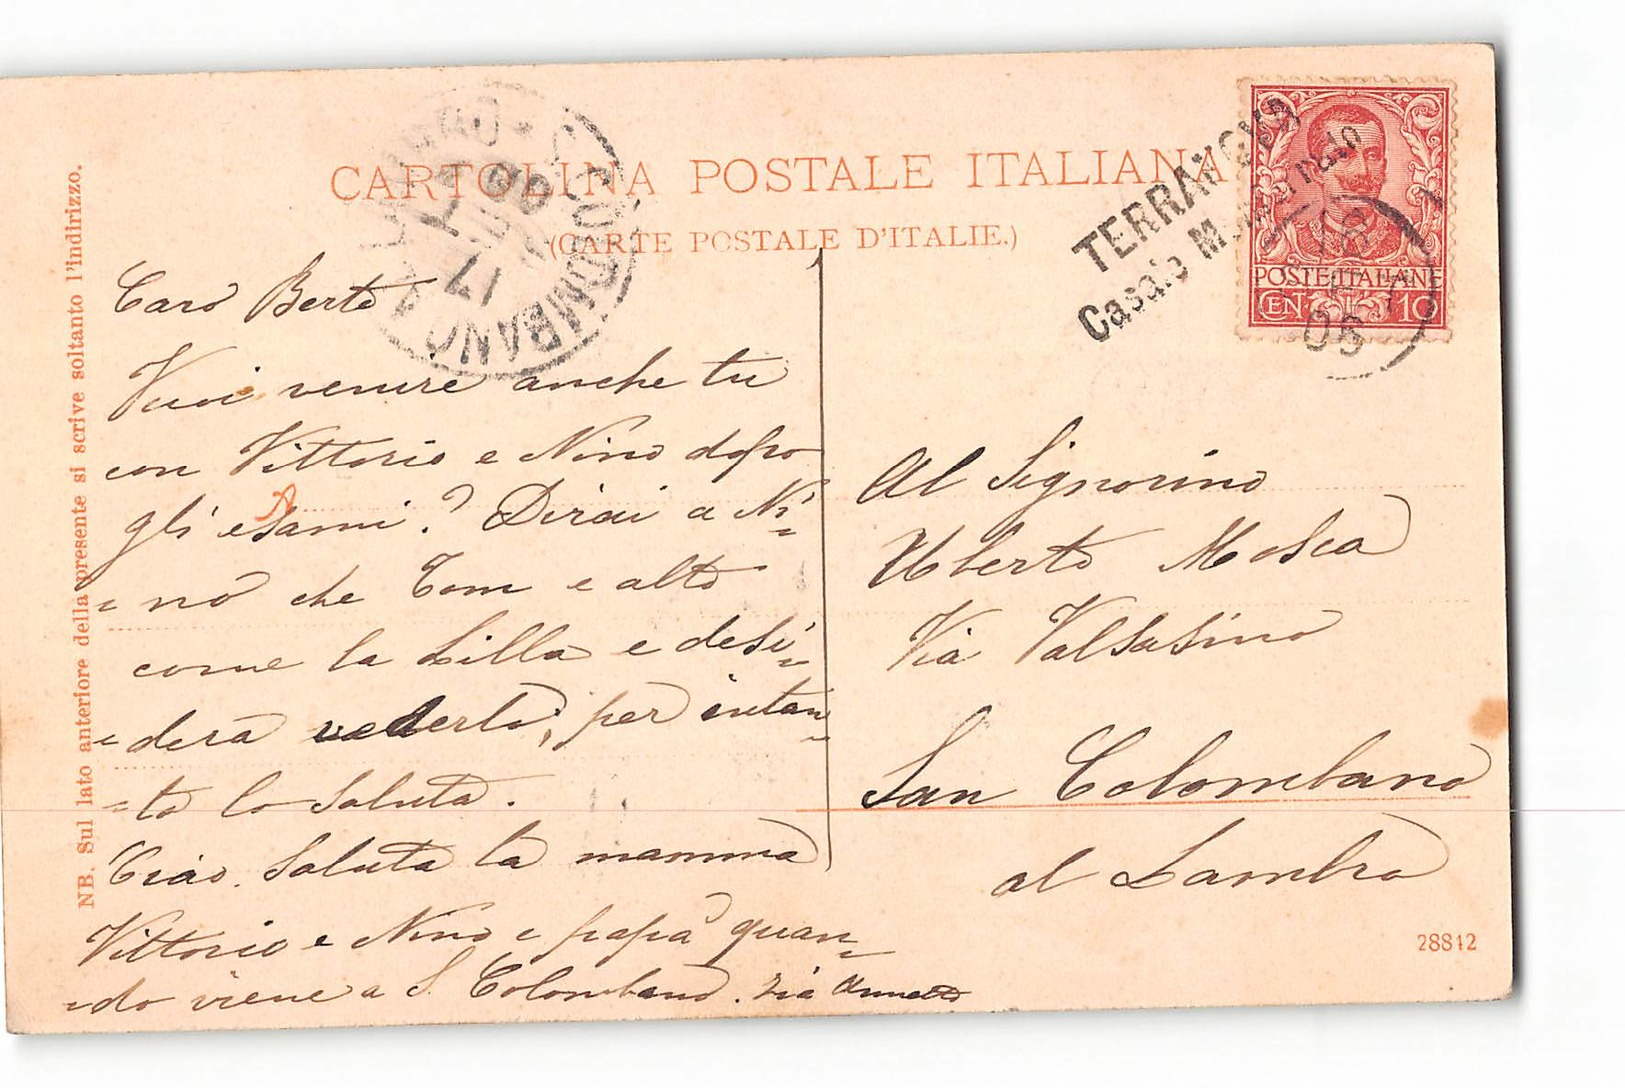 CARTOLINA POSTALE ITALIANA
(CARTE POSTALE D'ITALIE.)
NB. Sul lato anteriore della presente si scrive soltanto l'indirizzo.
TERRANOVA
Casale Monferrato
POSTE ITALIANE
CEN. 10
S. COLOMBANO AL LAMBRO
17
06
Caro Berto
Vuoi venire anche tu
con Vittorio e Nino dopo
gli esami? Dirai a Ni=
=no che Tom e alto
come la Lilla e desi=
=dera vederlo; per intan=
=to lo saluta.
Ciao. Saluta la mamma
Vittorio e Nino e papà quan=
=do viene a S. Colombano. Zia
Al Signorino
Uberto Mosca
Via Valsasino
San Colombano
al Lambro
28812